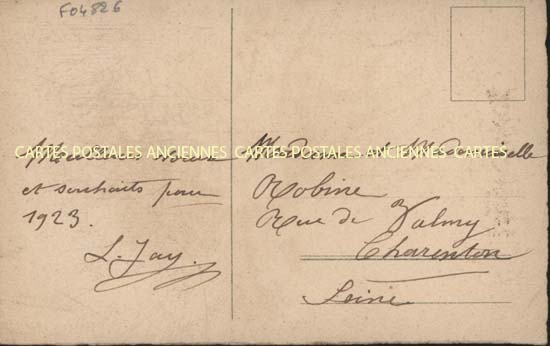 F04826
Meilleurs vœux
et souhaits pour
1923.
L. Jay.
Madame et Mademoiselle
Robine
Rue de Valmy
Charenton
Seine
CARTES POSTALES ANCIENNES CARTES POSTALES ANCIENNES